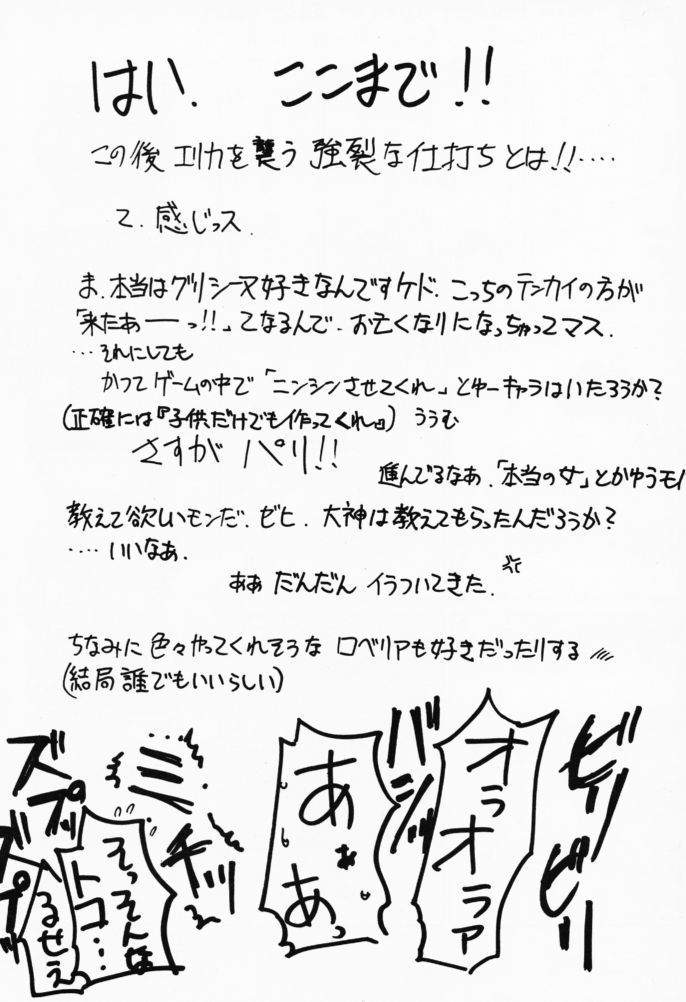 はい. ここまで!!
この後エリカを襲う強裂な仕打ちとは!!‥‥
て. 感じっス.
ま.本当はグリシーヌ好きなんですケド. こっちのテンカイの方が
「来たあーっ!!」てなるんで. お亡くなりになっちゃってマス.
…それにしても
かつてゲームの中で「ニンシンさせてくれ」とゆーキャラはいたろうか?
(正確には『子供だけでも作ってくれ』) ううむ
さすが パリ!!
進んでるなあ.「本当の女」とかゆうモノ
教えて欲しいモンだ. ゼヒ. 大神は教えてもらったんだろうか?
‥‥いいなあ.
ああ だんだん イラついてきた.
ちなみに色々やってくれそうな ロベリアも好きだったりする
(結局誰でもいいらしい)
ビリ
ビリ
オラオラァ
バシッ
あぁあっ
ミチッ
そっそんな
トコ…
るせえ
ズプッ
ズプッ